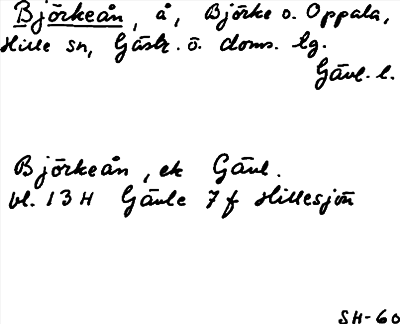 Björkeån, å, Björke o. Oppala,
Hille sn, Gästr. ö. doms. lg.
Gävl. l.
Björkeån, ek Gävl.
bl. 13 H Gävle 7 f Hillesjön
SH-60